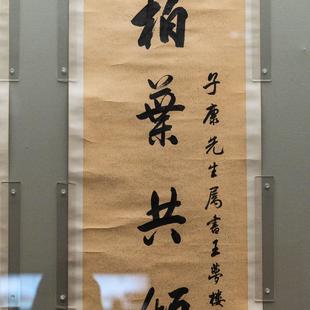 子康先生属書王夢樓
柏葉共